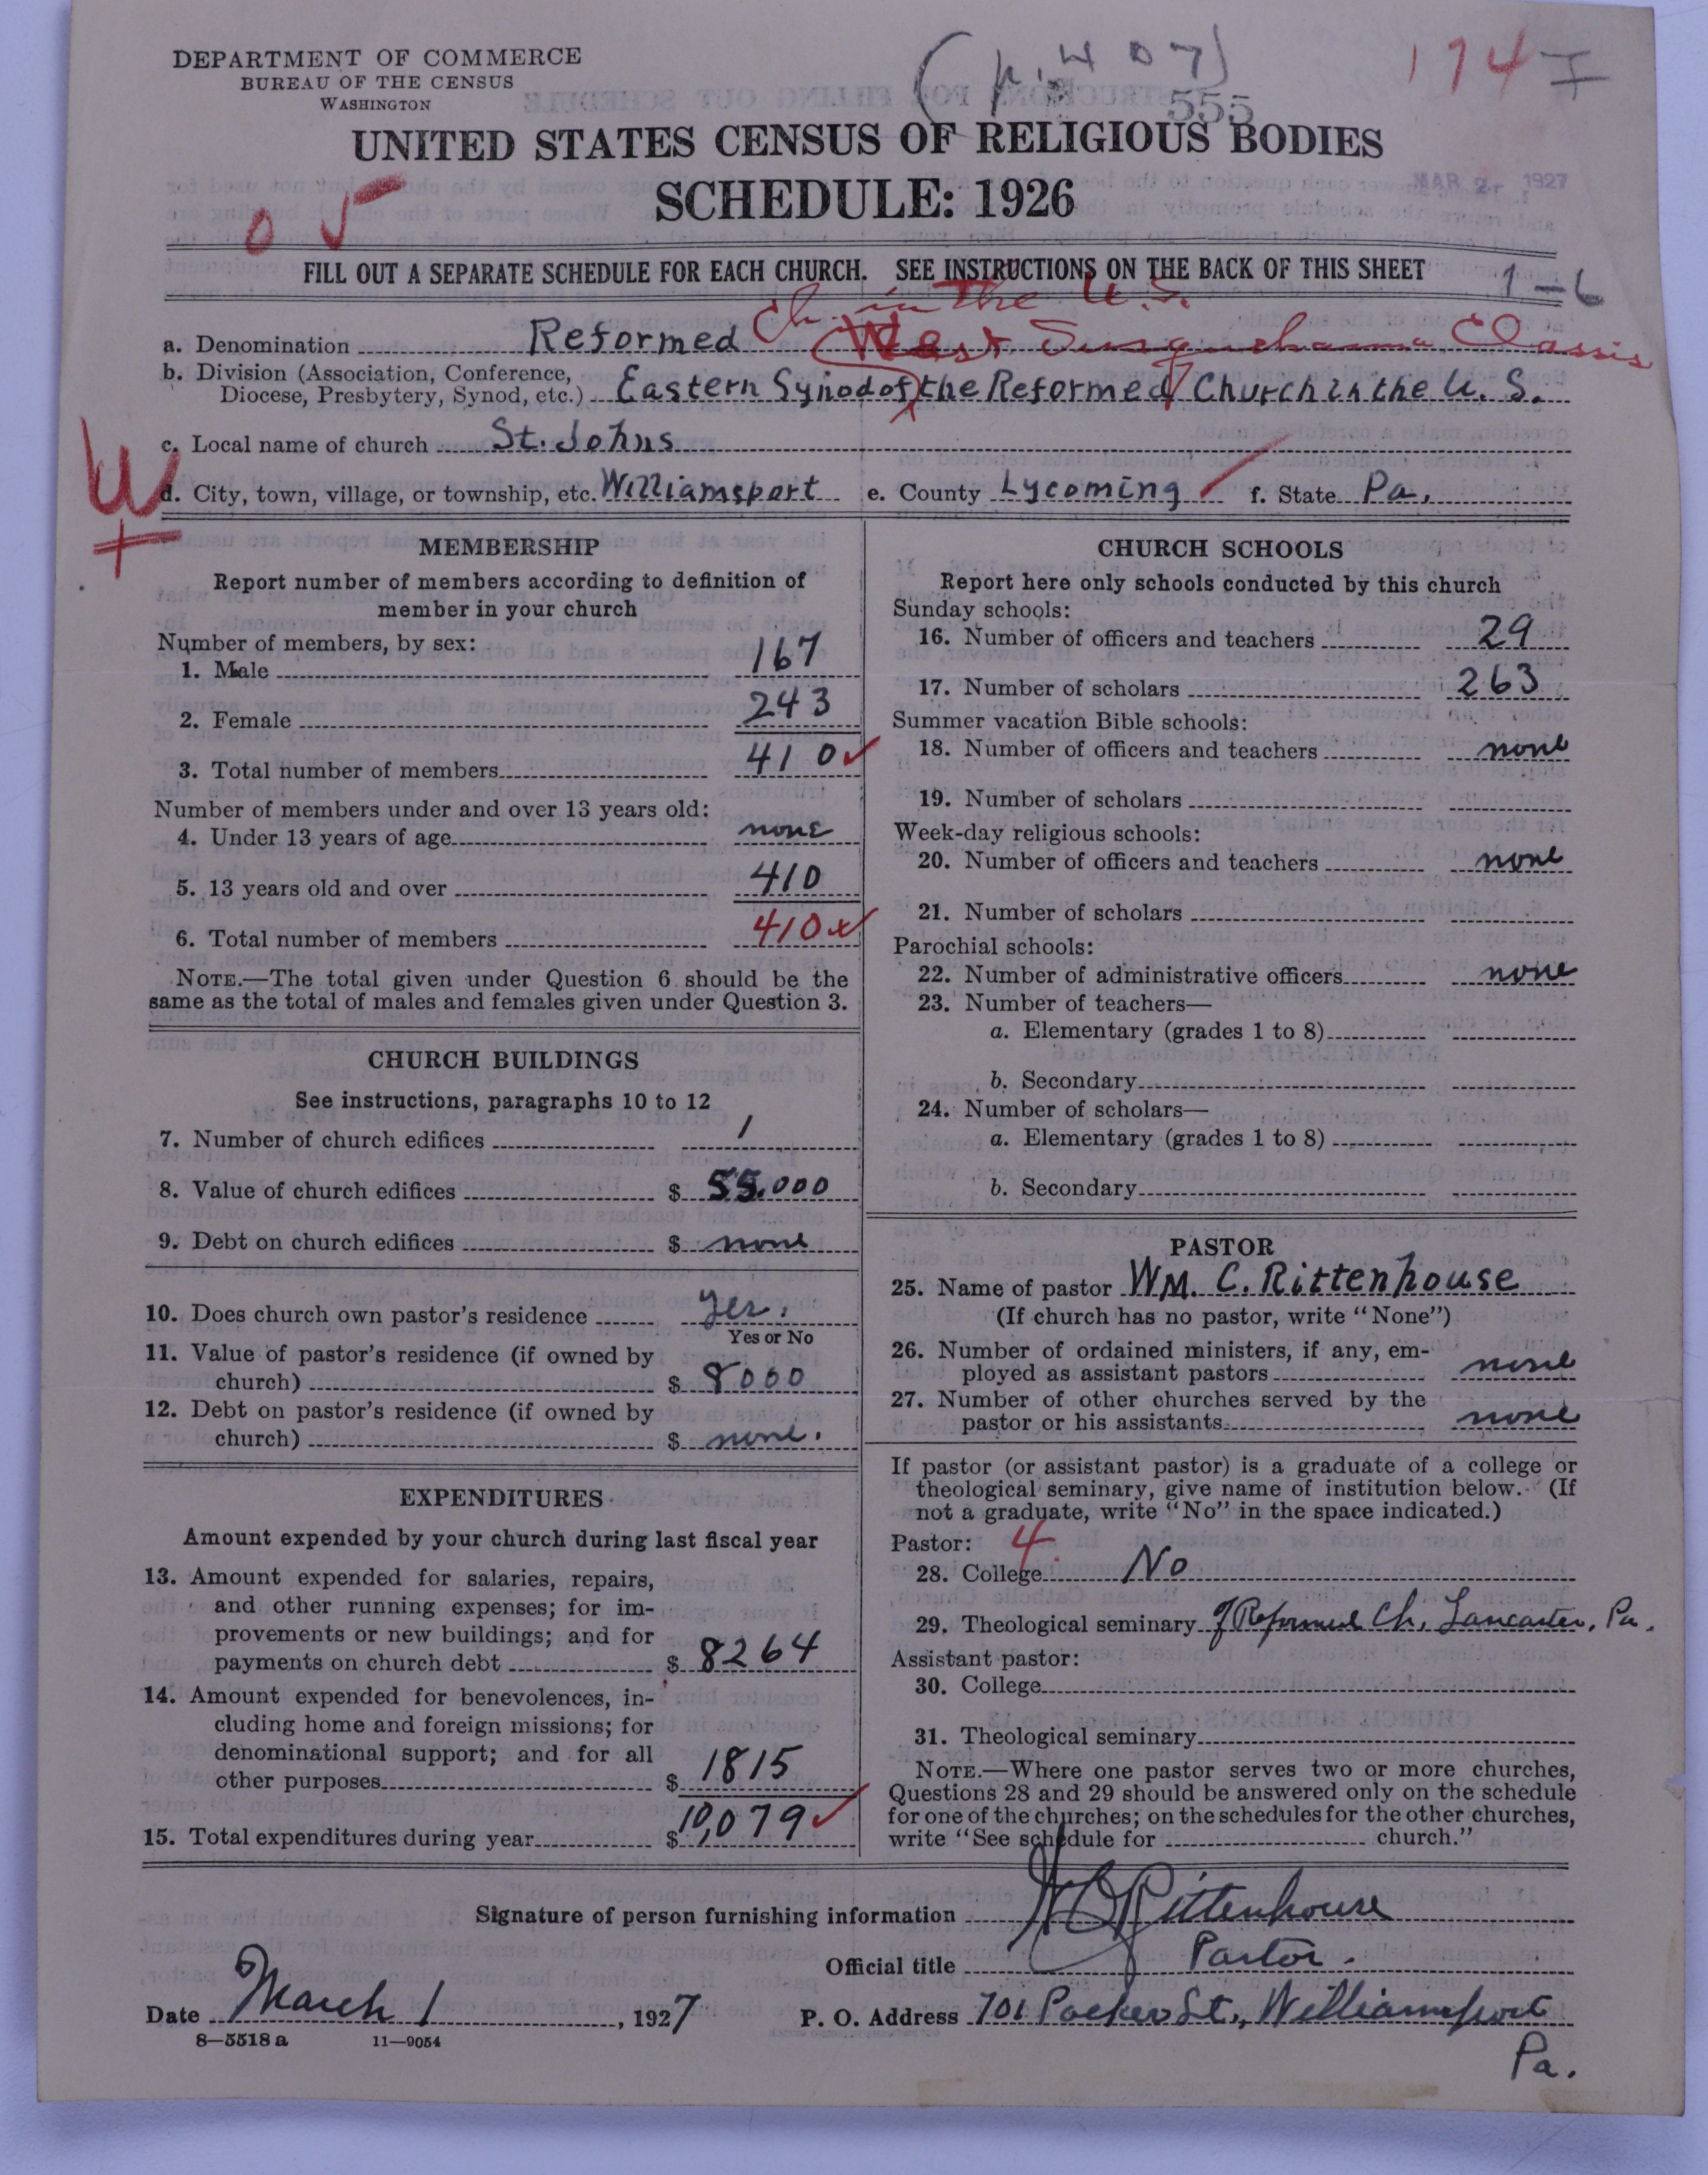 DEPARTMENT OF COMMERCE
BUREAU OF THE CENSUS
WASHINGTON
(p. 407)
174 I
555
UNITED STATES CENSUS OF RELIGIOUS BODIES
SCHEDULE: 1926
MAR 2 1927
05
FILL OUT A SEPARATE SCHEDULE FOR EACH CHURCH. SEE INSTRUCTIONS ON THE BACK OF THIS SHEET
1-6
a. Denomination Reformed Ch. in the U.S.
West Susquehanna Classis
b. Division (Association, Conference, Diocese, Presbytery, Synod, etc.) Eastern Synod of the Reformed Church in the U. S.
c. Local name of church St. Johns
d. City, town, village, or township, etc. Williamsport e. County Lycoming f. State Pa.
MEMBERSHIP
Report number of members according to definition of
member in your church
Number of members, by sex:
1. Male 167
2. Female 243
3. Total number of members 410
Number of members under and over 13 years old:
4. Under 13 years of age none
5. 13 years old and over 410
6. Total number of members 410
NOTE.—The total given under Question 6 should be the
same as the total of males and females given under Question 3.
CHURCH BUILDINGS
See instructions, paragraphs 10 to 12
7. Number of church edifices 1
8. Value of church edifices $ 55.000
9. Debt on church edifices $ none
10. Does church own pastor's residence yes.
Yes or No
11. Value of pastor's residence (if owned by
church) $ 8000
12. Debt on pastor's residence (if owned by
church) $ none.
EXPENDITURES
Amount expended by your church during last fiscal year
13. Amount expended for salaries, repairs,
and other running expenses; for im-
provements or new buildings; and for
payments on church debt $ 8264
14. Amount expended for benevolences, in-
cluding home and foreign missions; for
denominational support; and for all
other purposes $ 1815
15. Total expenditures during year $ 10,079
CHURCH SCHOOLS
Report here only schools conducted by this church
Sunday schools:
16. Number of officers and teachers 29
17. Number of scholars 263
Summer vacation Bible schools:
18. Number of officers and teachers none
19. Number of scholars
Week-day religious schools:
20. Number of officers and teachers none
21. Number of scholars
Parochial schools:
22. Number of administrative officers none
23. Number of teachers—
a. Elementary (grades 1 to 8)
b. Secondary
24. Number of scholars—
a. Elementary (grades 1 to 8)
b. Secondary
PASTOR
25. Name of pastor WM. C. Rittenhouse
(If church has no pastor, write "None")
26. Number of ordained ministers, if any, em-
ployed as assistant pastors none
27. Number of other churches served by the
pastor or his assistants none
If pastor (or assistant pastor) is a graduate of a college or
theological seminary, give name of institution below. (If
not a graduate, write "No" in the space indicated.)
Pastor: 4
28. College No
29. Theological seminary of Reformed Ch, Lancaster, Pa.
Assistant pastor:
30. College
31. Theological seminary
NOTE.—Where one pastor serves two or more churches,
Questions 28 and 29 should be answered only on the schedule
for one of the churches; on the schedules for the other churches,
write "See schedule for church."
Signature of person furnishing information W C Rittenhouse
Official title Pastor.
Date March 1, 1927 P. O. Address 701 Packer St., Williamsport
Pa.
8-5518 a 11-9054